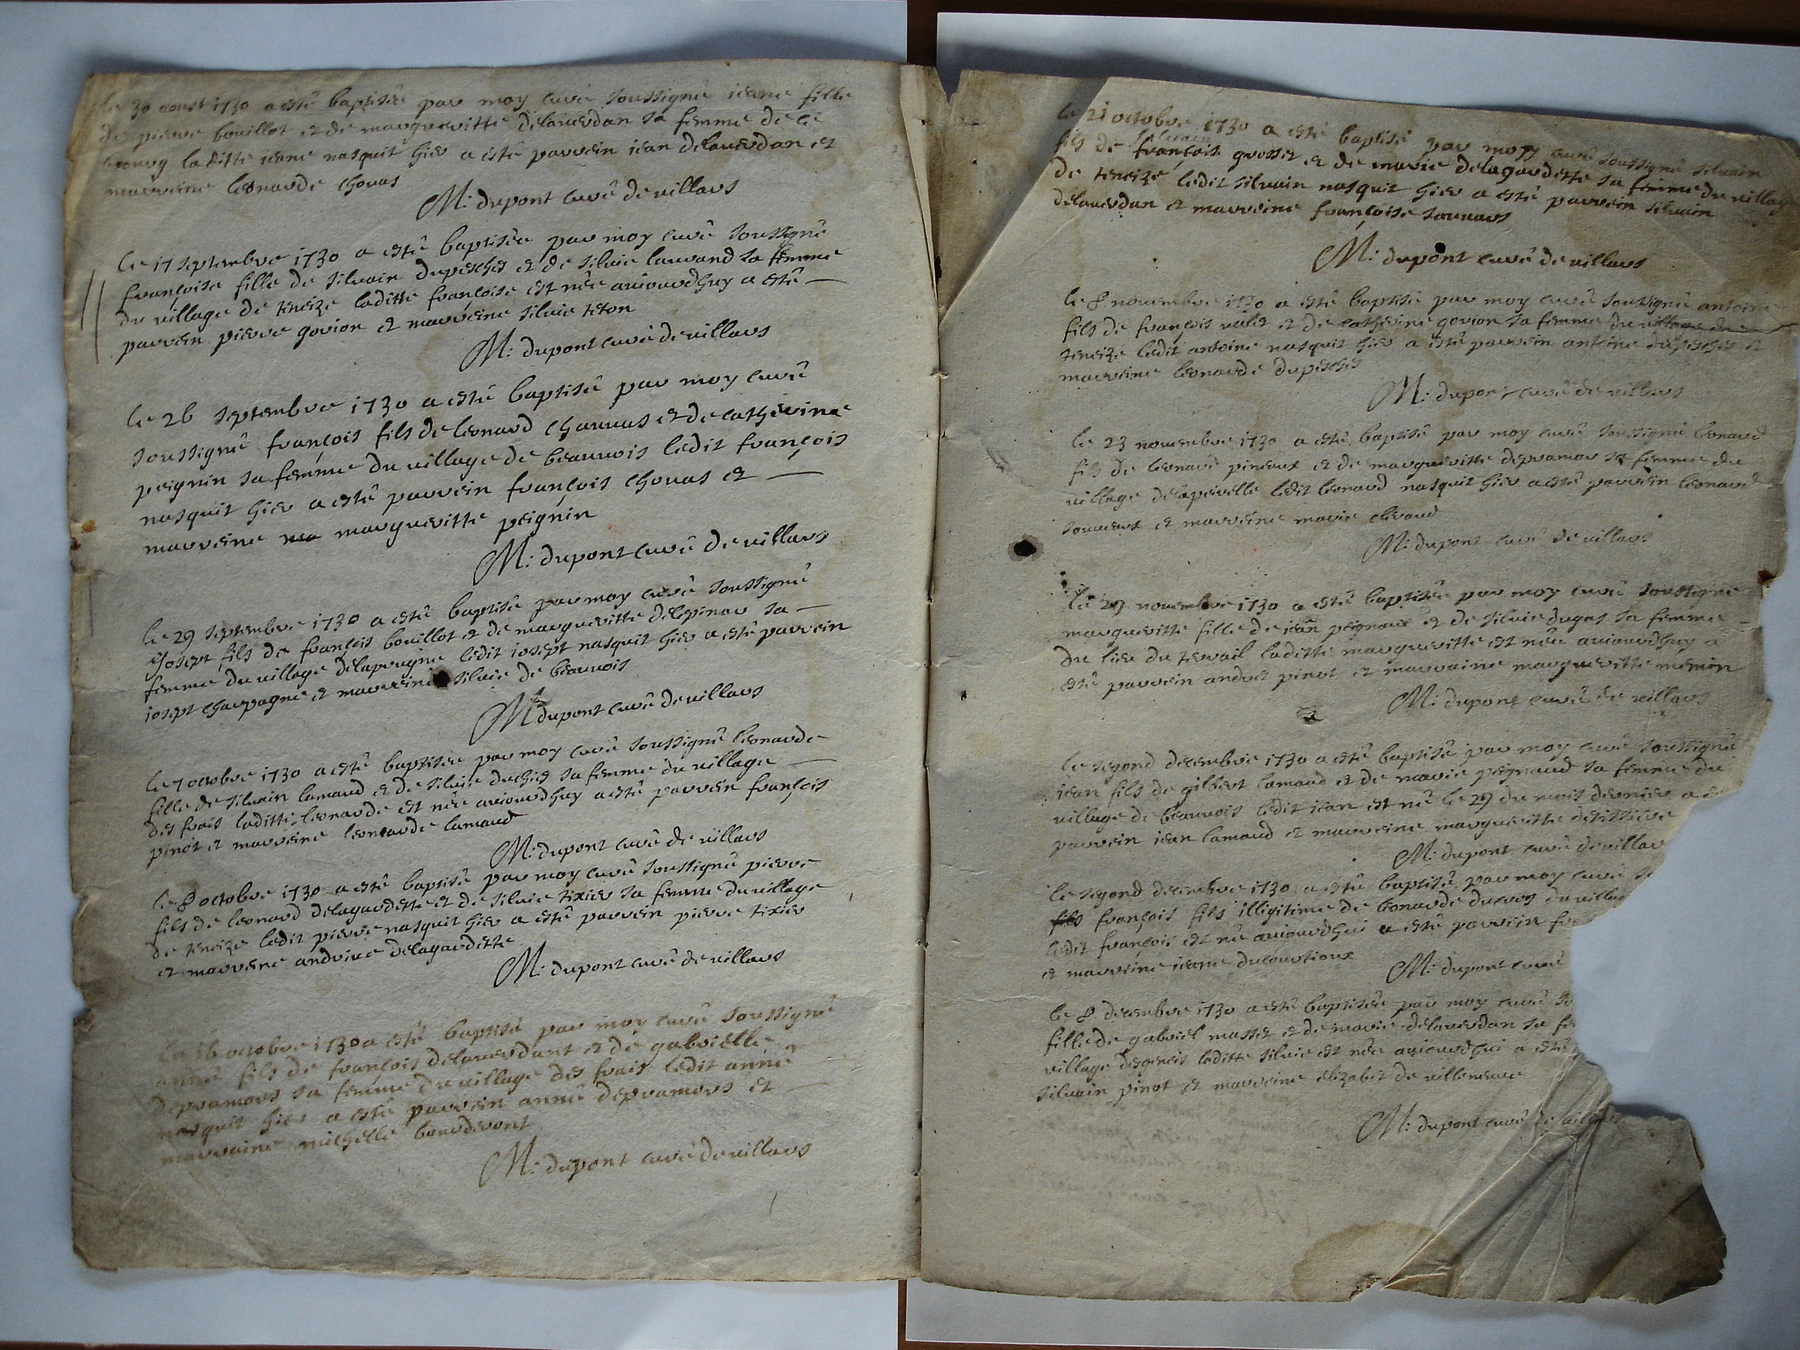 le 30 aoust 1730 a esté baptisée par moy curé soussigné ieane fille
de pierre bouillot et de margueritte delauerdan sa femme de ce
bourg laditte ieane nasquit hier a esté parrein iean delauerdan et
marreine leonarde chouas
M: dupont curé de villars
le 17 septembre 1730 a esté baptisée par moy curé soussigné
françoise fille de silvain dupeschés et de siluie laurand sa femme
du village de teneize laditte françoise est née auiourdhuy a esté
parrein pierre gorion et marreine siluie teton
M: dupont curé de villars
le 26 septembre 1730 a esté baptisé par moy curé
soussigné françois fils de leonard charuas et de catherine
peignin sa femme du village de beauuois ledit françois
nasquit hier a esté parrein françois chouas et
marreine ma margueritte peignin
M: dupont curé de villars
le 29 septembre 1730 a esté baptisé par moy curé soussigné
iosept fils de françois bouillot et de margueritte delepinar sa
femme du village delapeugine ledit iosept nasquit hier a esté parrein
iosept champagne et marreine siluie de beauuois
M: dupont curé de villars
le 7 octobre 1730 a esté baptisée par moy curé soussigné leonarde
fille de silvain lamaud et de siluie duchés sa femme du village
des frais laditte leonarde est née auiourdhuy a esté parrein françois
pinot et marreine leonarde lamaud
M: dupont curé de villars
le 8 octobre 1730 a esté baptisé par moy curé soussigné pierre
fils de leonard delagardette et de siluie tixier sa femme du village
de teneize ledit pierre nasquit hier a esté parrein pierre tixier
et marreine andrive delagardette
M: dupont curé de villars
le 16 octobre 1730 a esté baptisé par moy curé soussigné
anné fils de françois delauerdant et de gabrielle
depramors sa femme du village des frais ledit anné
nasquit hier a esté parrein anné depramors et
marraine michelle bourderont
M: dupont curé de villars
le 21 octobre 1730 a esté baptisé par moy curé soussigné silvain
fils de silvain françois grosset et de marie delagardette sa femme du village
de teneize ledit silvain nasquit hier a esté parrein silvain
delauerdan et marreine françoise sournars
M: dupont curé de villars
le 8 novembre 1730 a esté baptisé par moy curé soussigné antoine
fils de françois valet et de catherine gorion sa femme du village de
teneize ledit antoine nasquit hier a esté parrein antoine dupeschés et
marreine leonarde dupeschés
M: dupont curé de villars
le 23 novembre 1730 a esté baptisé par moy curé soussigné leonard
fils de leonard pineaux et de margueritte depramor sa femme du
village delapeirelle ledit leonard nasquit hier a esté parrein leonard
et marreine marie
M: dupont curé de villars
le 27 novembre 1730 a esté baptisée par moy curé soussigné
margueritte fille de iean peignaux et de siluie dugas sa femme
du lieu du terrail laditte margueritte est née auiourdhuy a
esté parrein andre pinot et marraine margueritte memin
M: dupont curé de villars
le segond decembre 1730 a esté baptisé par moy curé soussigné
iean fils de gilbert lamaud et de marie peignaud sa femme du
village de beauuois ledit iean est né le 29 du mois dernier a
parrein iean lamaud et marreine margueritte
M: dupont curé de villar
le segond decembre 1730 a esté baptisé par moy curé
fils françois fils illigitime de leonarde ducros du villag
ledit françois est né auiourdhui a esté parrein
et marreine ieane ducourtioux
M: dupont curé
le 8 decembre 1730 a esté baptisée par moy curé so
fille de gabriel masset et de marie delauerdan sa fe
village desgenest laditte siluie est née auiourdhui a esté
silvain pinot et marreine elizabet de villeneuve
M: dupont curé de villars